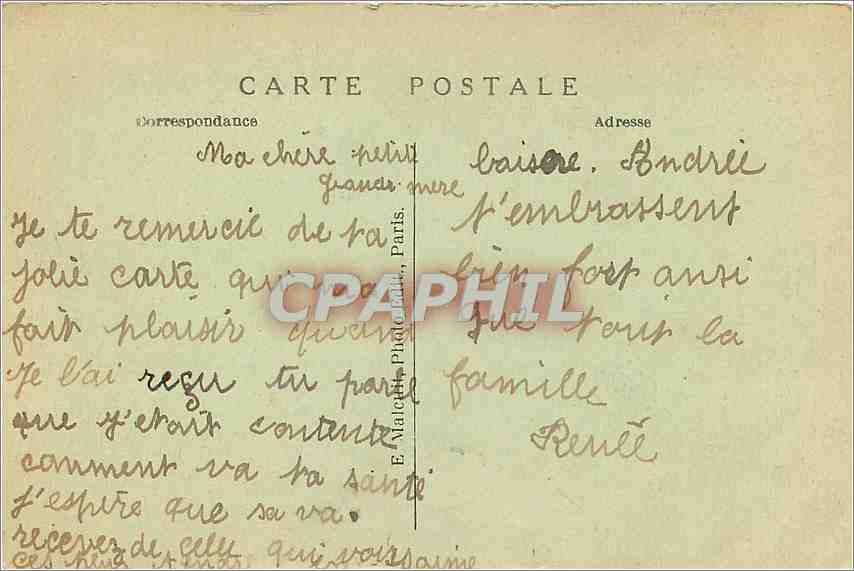 CARTE POSTALE
Correspondance
Ma chère petit
grande mère
Je te remercie de ta
jolie carte qui ma
fait plaisir quand
Je l'ai reçu tu parle
que j'etait contente
comment va ta santé
j'espère que sa va.
recevez de celle qui vois aime
ces
E. Malcuit, Photo-Edit., Paris.
Adresse
baisere. Andrée
t'embrassent
bien fort ansi
que tout la
famille
Renée
CPAPHIL